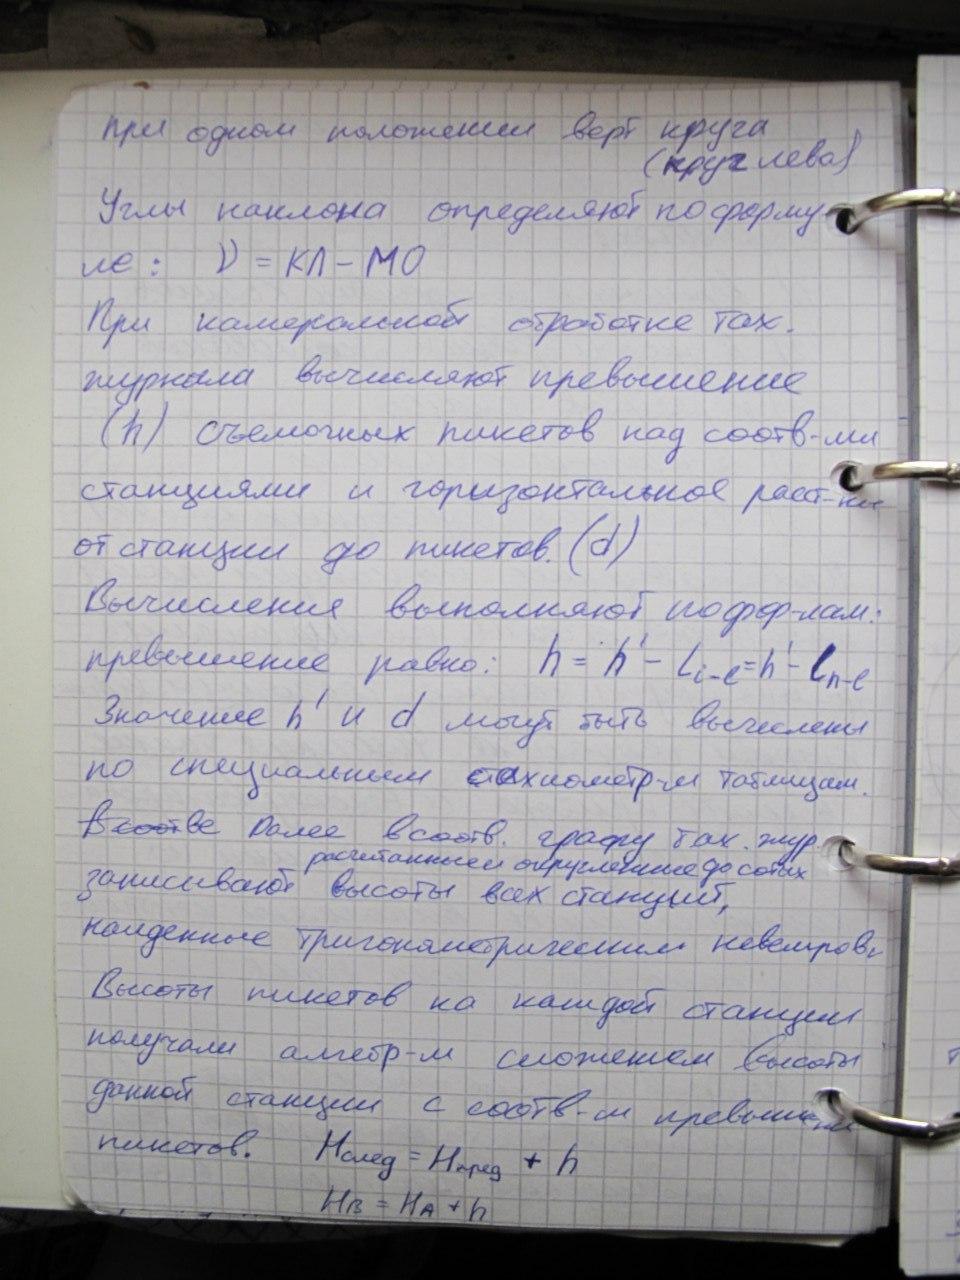 при одном положении верт круга
(круг лева)
Углы наклона определяют по форму-
ле: ν = КЛ - МО
При камеральной обработке тах.
журнала вычисляют превышение
(h) съемочных пикетов над соотв-ми
станциями и горизонтальное расст-ни
от станции до пикетов. (d)
Вычисления выполняют по фор-лам:
превышение равно: h = h' - Li-e = h' - Ln-e
Значение h' и d могут быть вычислены
по специальным тахиометр-м таблицам.
Далее в соотв. графу тах. жур.
расчитанными округленные до сотых
записывают высоты всех станций,
найденные тригонометрическим невелиров.
Высоты пикетов на каждой станции
получали алгебр-м сложением высоты
данной станции с соотв-м превышени
пикетов. Hслед = Hпред + h
HB = HA + h